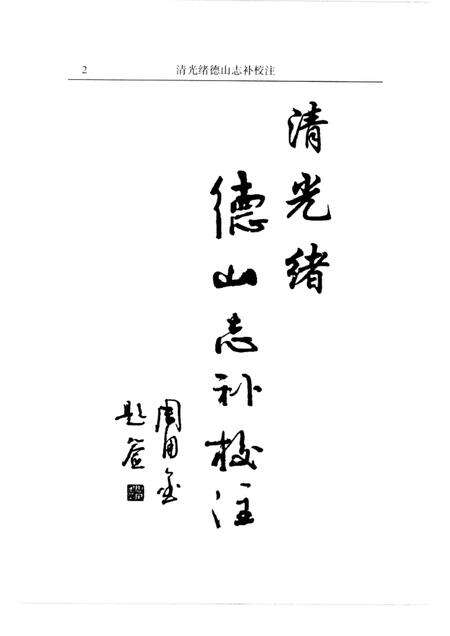 2
清光绪德山志补校注
清光绪
德山志补校注
周用金
题签